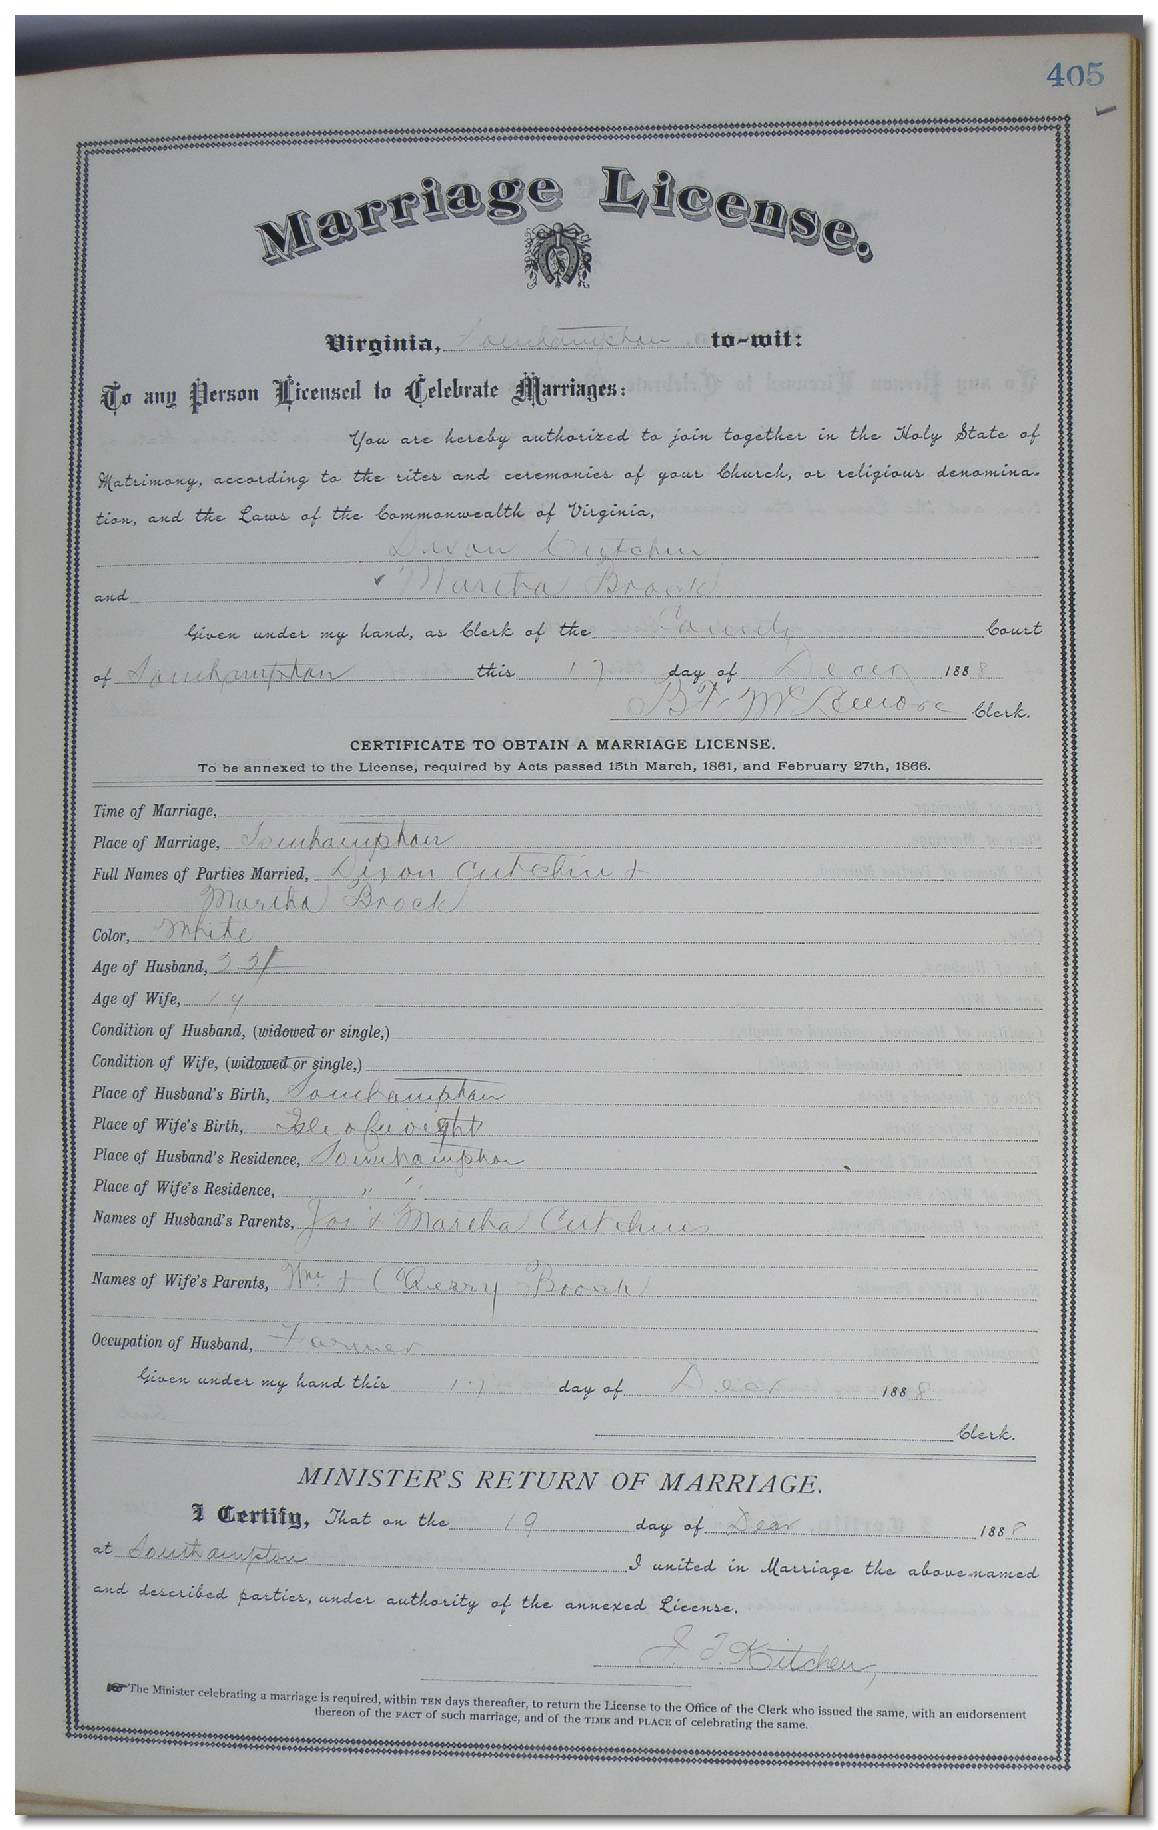 405
Marriage License.
Virginia, Southampton to-wit:
To any Person Licensed to Celebrate Marriages:
You are hereby authorized to join together in the Holy State of
Matrimony, according to the rites and ceremonies of your Church, or religious denomina-
tion, and the Laws of the Commonwealth of Virginia,
Dixon Cutchin
and Martha Brock
Given under my hand, as Clerk of the County Court
of Southampton this 17 day of 1888
Clerk.
CERTIFICATE TO OBTAIN A MARRIAGE LICENSE.
To be annexed to the License, required by Acts passed 15th March, 1861, and February 27th, 1866.
Time of Marriage,
Place of Marriage, Southampton
Full Names of Parties Married, Dixon Cutchin &
Martha Brock
Color, White
Age of Husband,
Age of Wife, 19
Condition of Husband, (widowed or single,)
Condition of Wife, (widowed or single,)
Place of Husband's Birth, Southampton
Place of Wife's Birth, Isle of wight
Place of Husband's Residence, Southampton
Place of Wife's Residence, " "
Names of Husband's Parents, Jos & Martha Cutchins
Names of Wife's Parents, Wm & Cherry Brock
Occupation of Husband, Farmer
Given under my hand this 17 day of Decr 1888
Clerk.
MINISTER'S RETURN OF MARRIAGE.
I Certify, That on the 19 day of Decr 1888
at Southampton I united in Marriage the above-named
and described parties, under authority of the annexed License.
J. T. Kitchen,
The Minister celebrating a marriage is required, within TEN days thereafter, to return the License to the Office of the Clerk who issued the same, with an endorsement
thereon of the FACT of such marriage, and of the TIME and PLACE of celebrating the same.